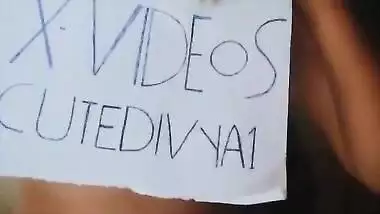 X-VIDEOS
CUTEDIVYA1